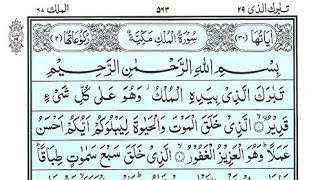 تبرك الذی ٢٩ ٥٦٣ الملك ٦٧
اٰيَاتُهَا (٣٠) سُوْرَةُ الْمُلْكِ مَكِّيَّةٌ رُكُوْعَاتُهَا (٢)
بِسْمِ اللّٰهِ الرَّحْمٰنِ الرَّحِيْمِ
تَبٰرَكَ الَّذِيْ بِيَدِهِ الْمُلْكُ وَهُوَ عَلٰى كُلِّ شَيْءٍ
قَدِيْرُ الَّذِيْ خَلَقَ الْمَوْتَ وَالْحَيٰوةَ لِيَبْلُوَكُمْ اَيُّكُمْ اَحْسَنُ
عَمَلًا وَهُوَ الْعَزِيْزُ الْغَفُوْرُ الَّذِيْ خَلَقَ سَبْعَ سَمٰوٰتٍ طِبَاقًا